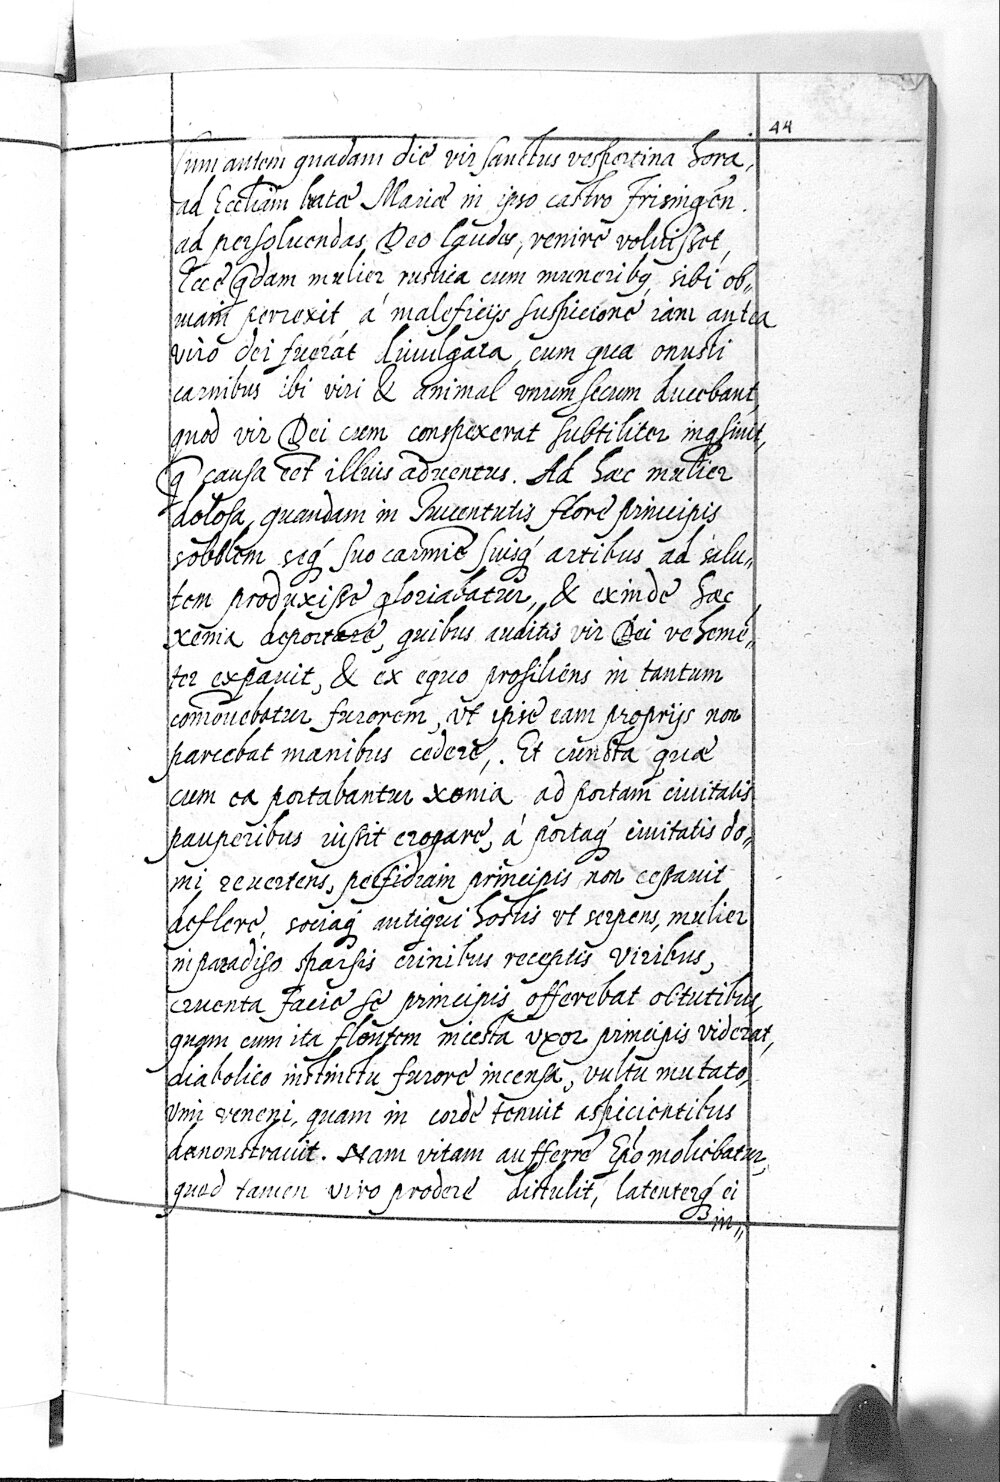 44
Cum autem quadam die vir sanctus vespertina hora,
ad Eccliam beatæ Mariæ in ipso castro Frisingen.
ad persoluendas Deo laudes, venire voluisset,
Ecce qdam mulier rustica cum muneribq sibi ob„
uiam perrexit á maleficijs suspicione iam antea
viro dei fuerat diuulgata, cum qua onusti
carnibus ibi viri & animal vnum secum ducebant,
quod vir Dei cum conspexerat subtiliter inqsiuit,
q causa eet illius aduentus. Ad hæc mulier
dolosa, quandam in Iuuentutis flore principis
sobolem seq́ suo carmine suisq́ artibus ad salu„
tem produxisse gloriabatur, & exinde hæc
xenia deportare, quibus auditis vir Dei vehemē„
ter expauit, & ex equo prosiliens in tantum
comouebatur furorem, vt ipse eam proprijs non
parcebat manibus cedere,. Et cuncta quæ
cum ea portabantur xenia ad portam ciuitatis
pauperibus iussit erogare, á portaq́ ciuitatis do„
mi reuertens, perfidiam principis non cessauit
deflere, sociaq́ antiqui hostis vt serpens, mulier
in paradiso sparsis crinibus receptis viribus,
cruenta facie se principis offerebat obtutibus,
quam cum ita flentem incesta vxor principis viderat,
diabolico instinctu furore incensa, vultu mutato,
vim veneni, quam in corde tenuit aspicientibus
demonstrauit. Nam vitam aufferre Epo moliebatur,
quod tamen viro prodere distulit, latenterq́ ei
in„